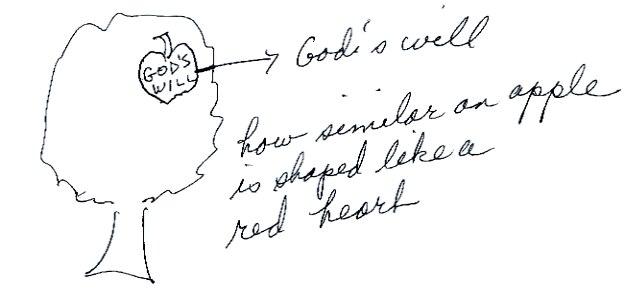 GOD'S
WILL
God's will
how similar an apple
is shaped like a
red heart